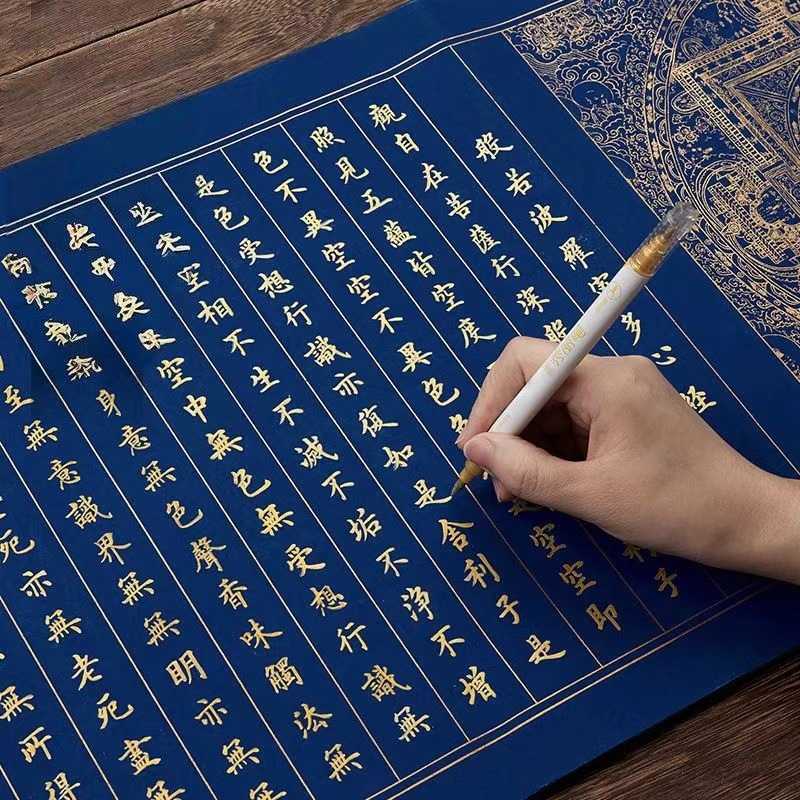 般若波羅多心經
觀自在菩薩行深般利子
照見五蘊皆空度
色不異空空不異色色是空空即
是色受想行識亦復如是舍利子是
空相不生不滅不垢不淨不增
空中無色無受想行識無
身意無色聲香味觸法無
至無意識界無無明亦無
死亦無老死盡
無所得